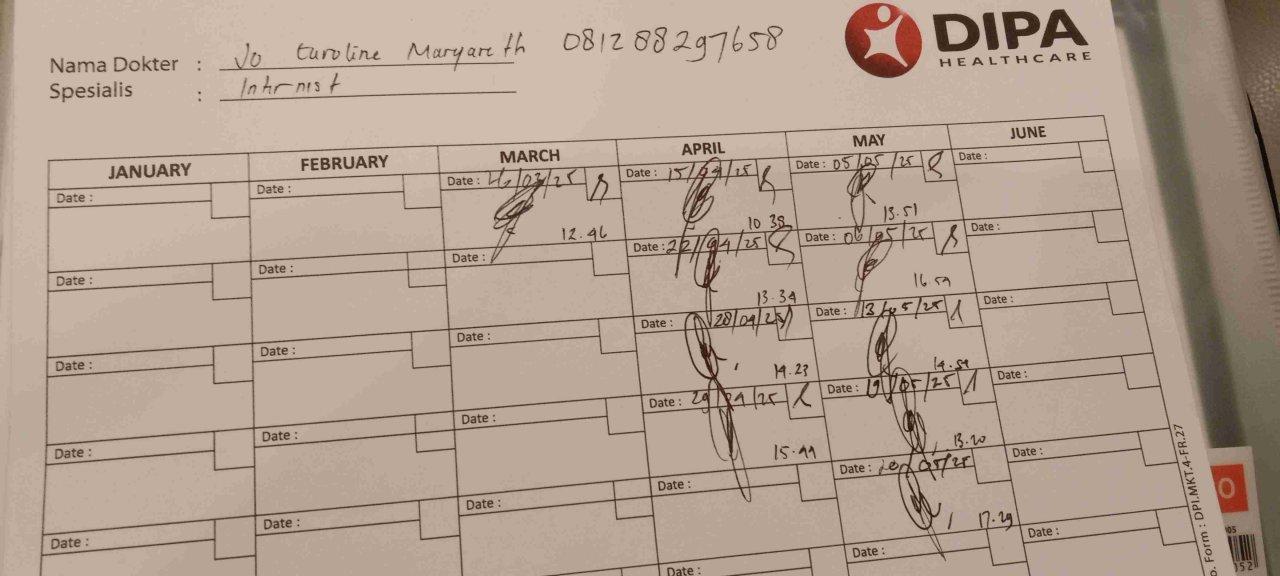 DIPA
HEALTHCARE
Nama Dokter : Jo Caroline Margareth 081288297658
Spesialis : Internist
JANUARY FEBRUARY MARCH APRIL MAY JUNE
Date : Date : Date : /03/25 Date : 15/04/25 Date : 05/05/25 Date :
12.46 10.38 13.51
Date : Date : Date : Date : 22/04/25 Date : 06/05/25 Date :
13.34 16.59
Date : Date : Date : Date : 28/04/25 Date : 13/05/25 Date :
14.23 14.59
Date : Date : Date : Date : 29/04/25 Date : 19/05/25 Date :
15.44 13.20
Date : Date : Date : Date : Date : 20/05/25 Date :
17.29
Date : Date : Date :
o. Form : DPI.MKT.4-FR.27